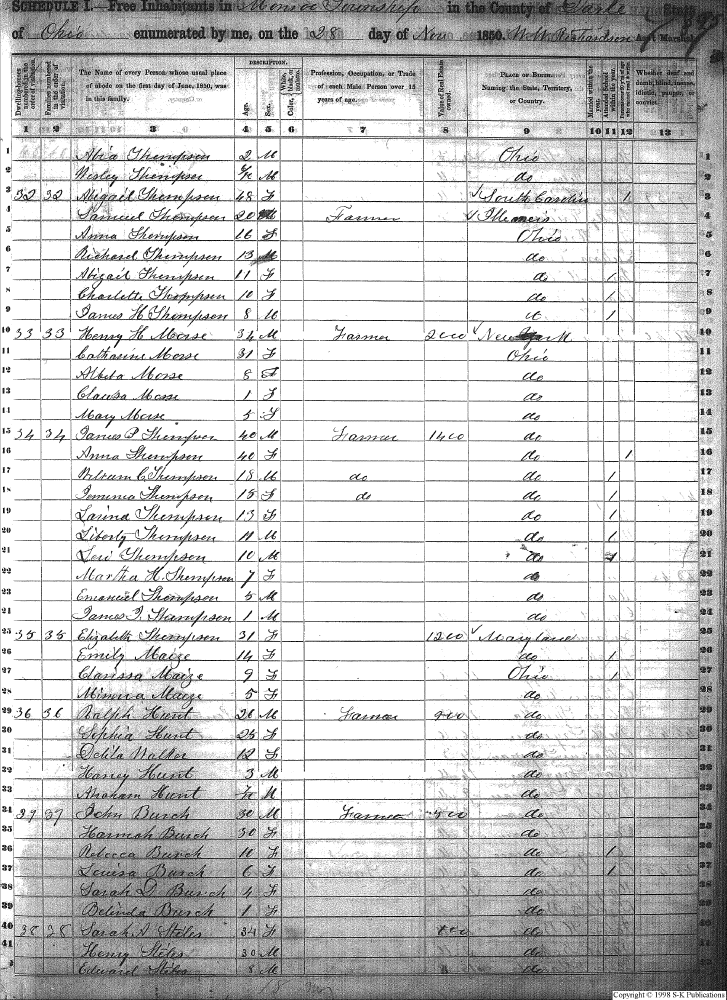 SCHEDULE I.—Free Inhabitants in Monroe Township in the County of Darke State
of Ohio enumerated by me, on the 28 day of Nov 1850. W. W. Richardson Ass't Marshal
Dwelling-houses numbered in the order of visitation.
Families numbered in the order of visitation.
The Name of every Person whose usual place of abode on the first day of June, 1850, was in this family.
DESCRIPTION.
Age.
Sex.
White, Color, black, or mulatto.
Profession, Occupation, or Trade of each Male Person over 15 years of age.
Value of Real Estate owned.
PLACE OF BIRTH. Naming the State, Territory, or Country.
Married within the year.
Attended School within the year.
Whether deaf and dumb, blind, insane, idiotic, pauper, or convict.
1 2 3 4 5 6 7 8 9 10 11 12 13
1 Thompson 2 M Ohio 1
2 Wesley Thompson M do 2
3 32 32 Abigail Thompson 48 F South Carolina 1 3
4 Samuel Thompson 20 M Farmer Illinois 4
5 Anna Thompson 16 F Ohio 5
6 Richard Thompson 13 M do 6
7 Abigail Thompson 11 F do 1 7
8 Charlotte Thompson 10 F do 1 8
9 James H Thompson 8 M 1 9
10 33 33 Henry H Morse 34 M Farmer 2000 New York 10
11 Catharine Morse 31 F Ohio 11
12 Morse 8 F do 12
13 Morse 1 F do 13
14 Mary Morse 5 F do 14
15 34 34 James P Thompson 40 M Farmer 1400 do 15
16 Anna Thompson 40 F do 1 16
17 C Thompson 18 M do do 1 17
18 Jemima Thompson 15 F do do 1 18
19 Thompson 13 F do 1 19
20 Liberty Thompson 11 M do 1 20
21 Levi Thompson 10 M do 1 21
22 Martha H. Thompson 7 F do 22
23 Emanuel Thompson 5 M do 23
24 James Thompson 1 M do 24
25 35 35 Elizabeth Thompson 31 F 1200 Maryland 25
26 Emily Maize 14 F do 1 26
27 Clarissa Maize 9 F Ohio 1 27
28 Maize 5 F do 28
29 36 36 Ralph Hunt 26 M Farmer 900 do 29
30 Sophia Hunt 25 F do 30
31 Delila Walker 12 F do 31
32 Harvey Hunt 3 M do 32
33 Abraham Hunt M do 33
34 37 37 John Burch 30 M Farmer do 34
35 Hannah Burch 30 F do 35
36 Rebecca Burch 10 F do 1 36
37 Louisa Burch 6 F do 1 37
38 Sarah D Burch 4 F do 38
39 Belinda Burch 1 F do 39
40 38 38 Sarah A Stiles 34 F do 40
41 Henry Stiles 30 M do 41
Edward Stiles 8 M do
Copyright © 1998 S-K Publications